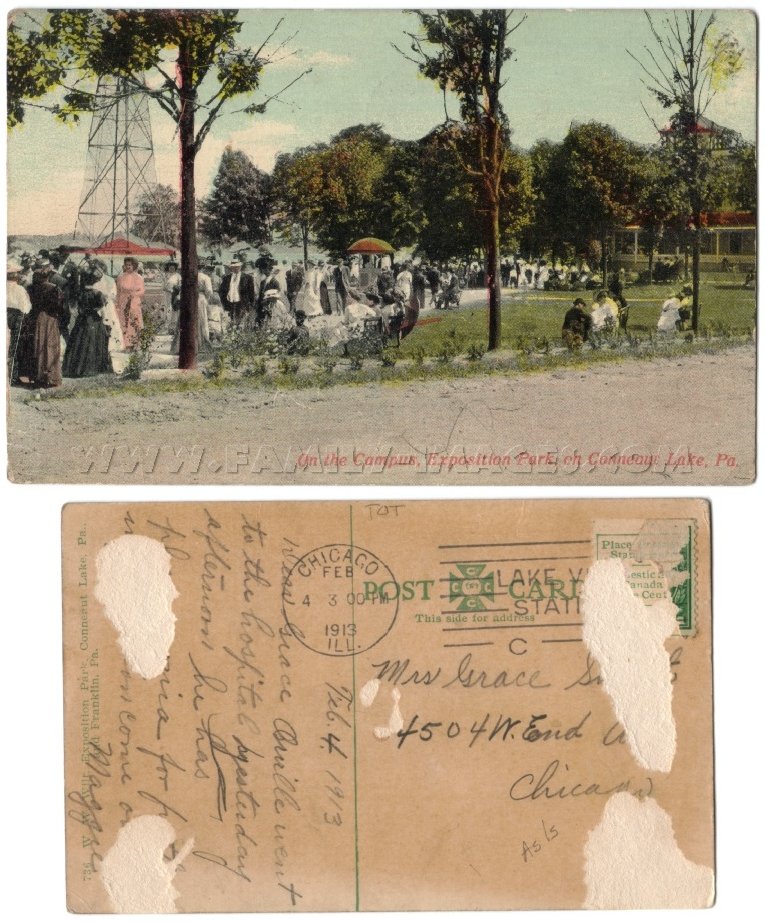 On the Campus, Exposition Park, on Conneaut Lake, Pa.
WWW.FAMILY-IMAGES.COM
TOT
CHICAGO
FEB
4 3 00 PM
1913
ILL.
LAKE VI
STATI
C
POST CARD
This side for address
Place
Stam
estic
anada
e Cent
Mrs Grace S
4504 W. End A
Chicago
As Is
Feb. 4, 1913
Dear Grace Orville went
to the hospital yesterday
afternoon he has
p nia for
income on
Maggie
739 W Exposition Park, Conneaut Lake, Pa.
d Franklin, Pa.